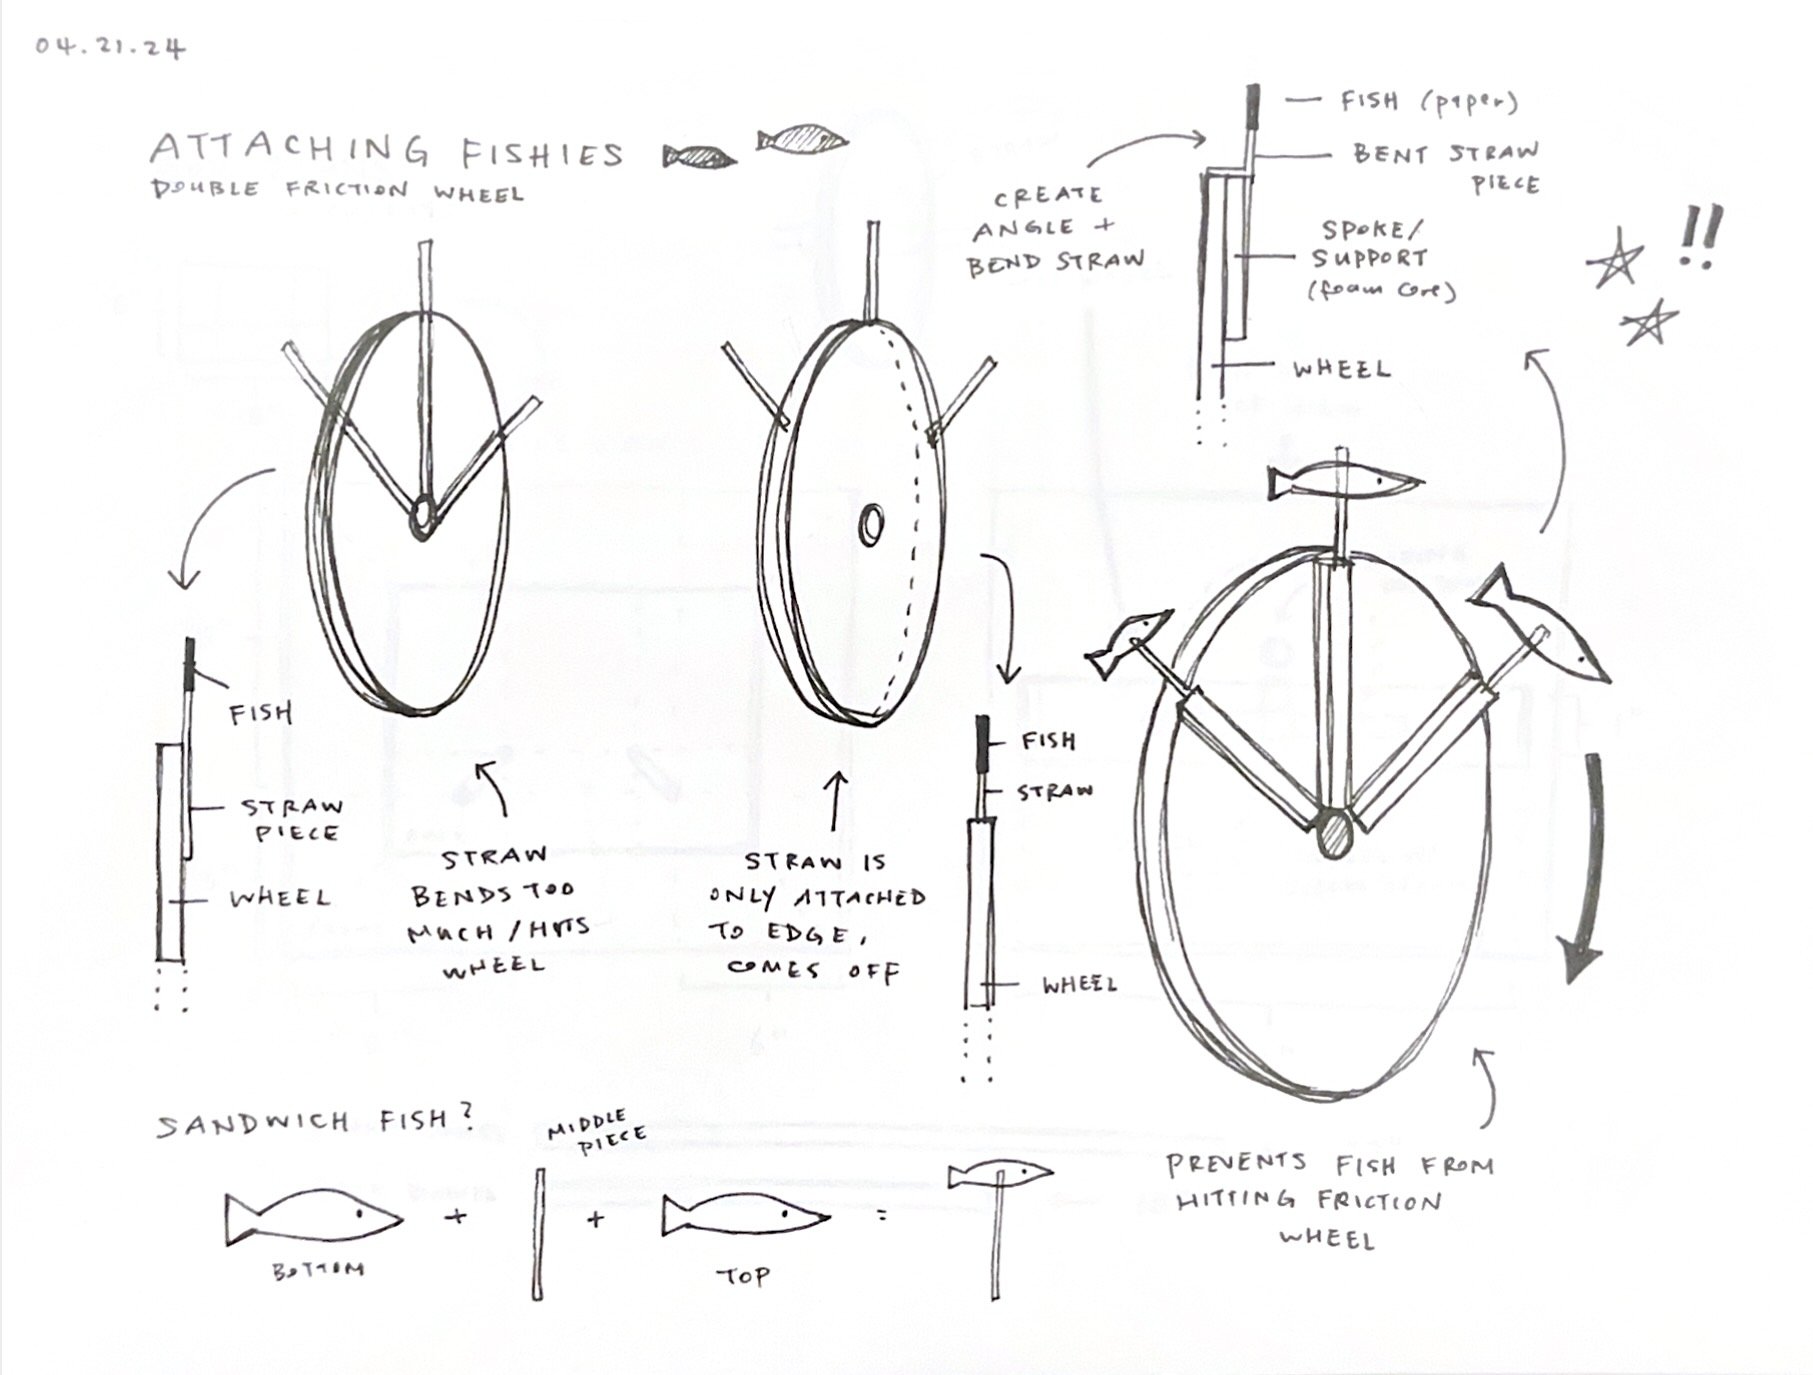 04.21.24
ATTACHING FISHIES
DOUBLE FRICTION WHEEL
CREATE
ANGLE +
BEND STRAW
FISH (paper)
BENT STRAW
PIECE
SPOKE/
SUPPORT
(foam core)
WHEEL
!!
FISH
STRAW
PIECE
WHEEL
STRAW
BENDS TOO
MUCH / HITS
WHEEL
STRAW IS
ONLY ATTACHED
TO EDGE,
COMES OFF
FISH
STRAW
WHEEL
PREVENTS FISH FROM
HITTING FRICTION
WHEEL
SANDWICH FISH?
MIDDLE
PIECE
+ + =
BOTTOM
TOP